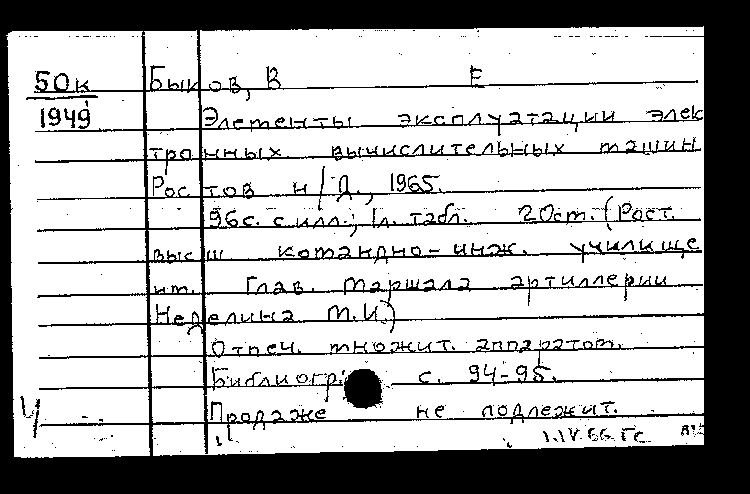 50к
1949
Быков, В Е
Элементы эксплуатации элек
тронных вычислительных машин
Ростов н/Д., 1965.
96с. с илл.; 1л. табл. 20см. (Рост.
высш командно-инж. училище
им. Глав. маршала артиллерии
Неделина М.И.)
Отпеч. множит. аппаратом.
Библиогр: с. 94-95.
Продаже не подлежит.
1.IV.66. Гс